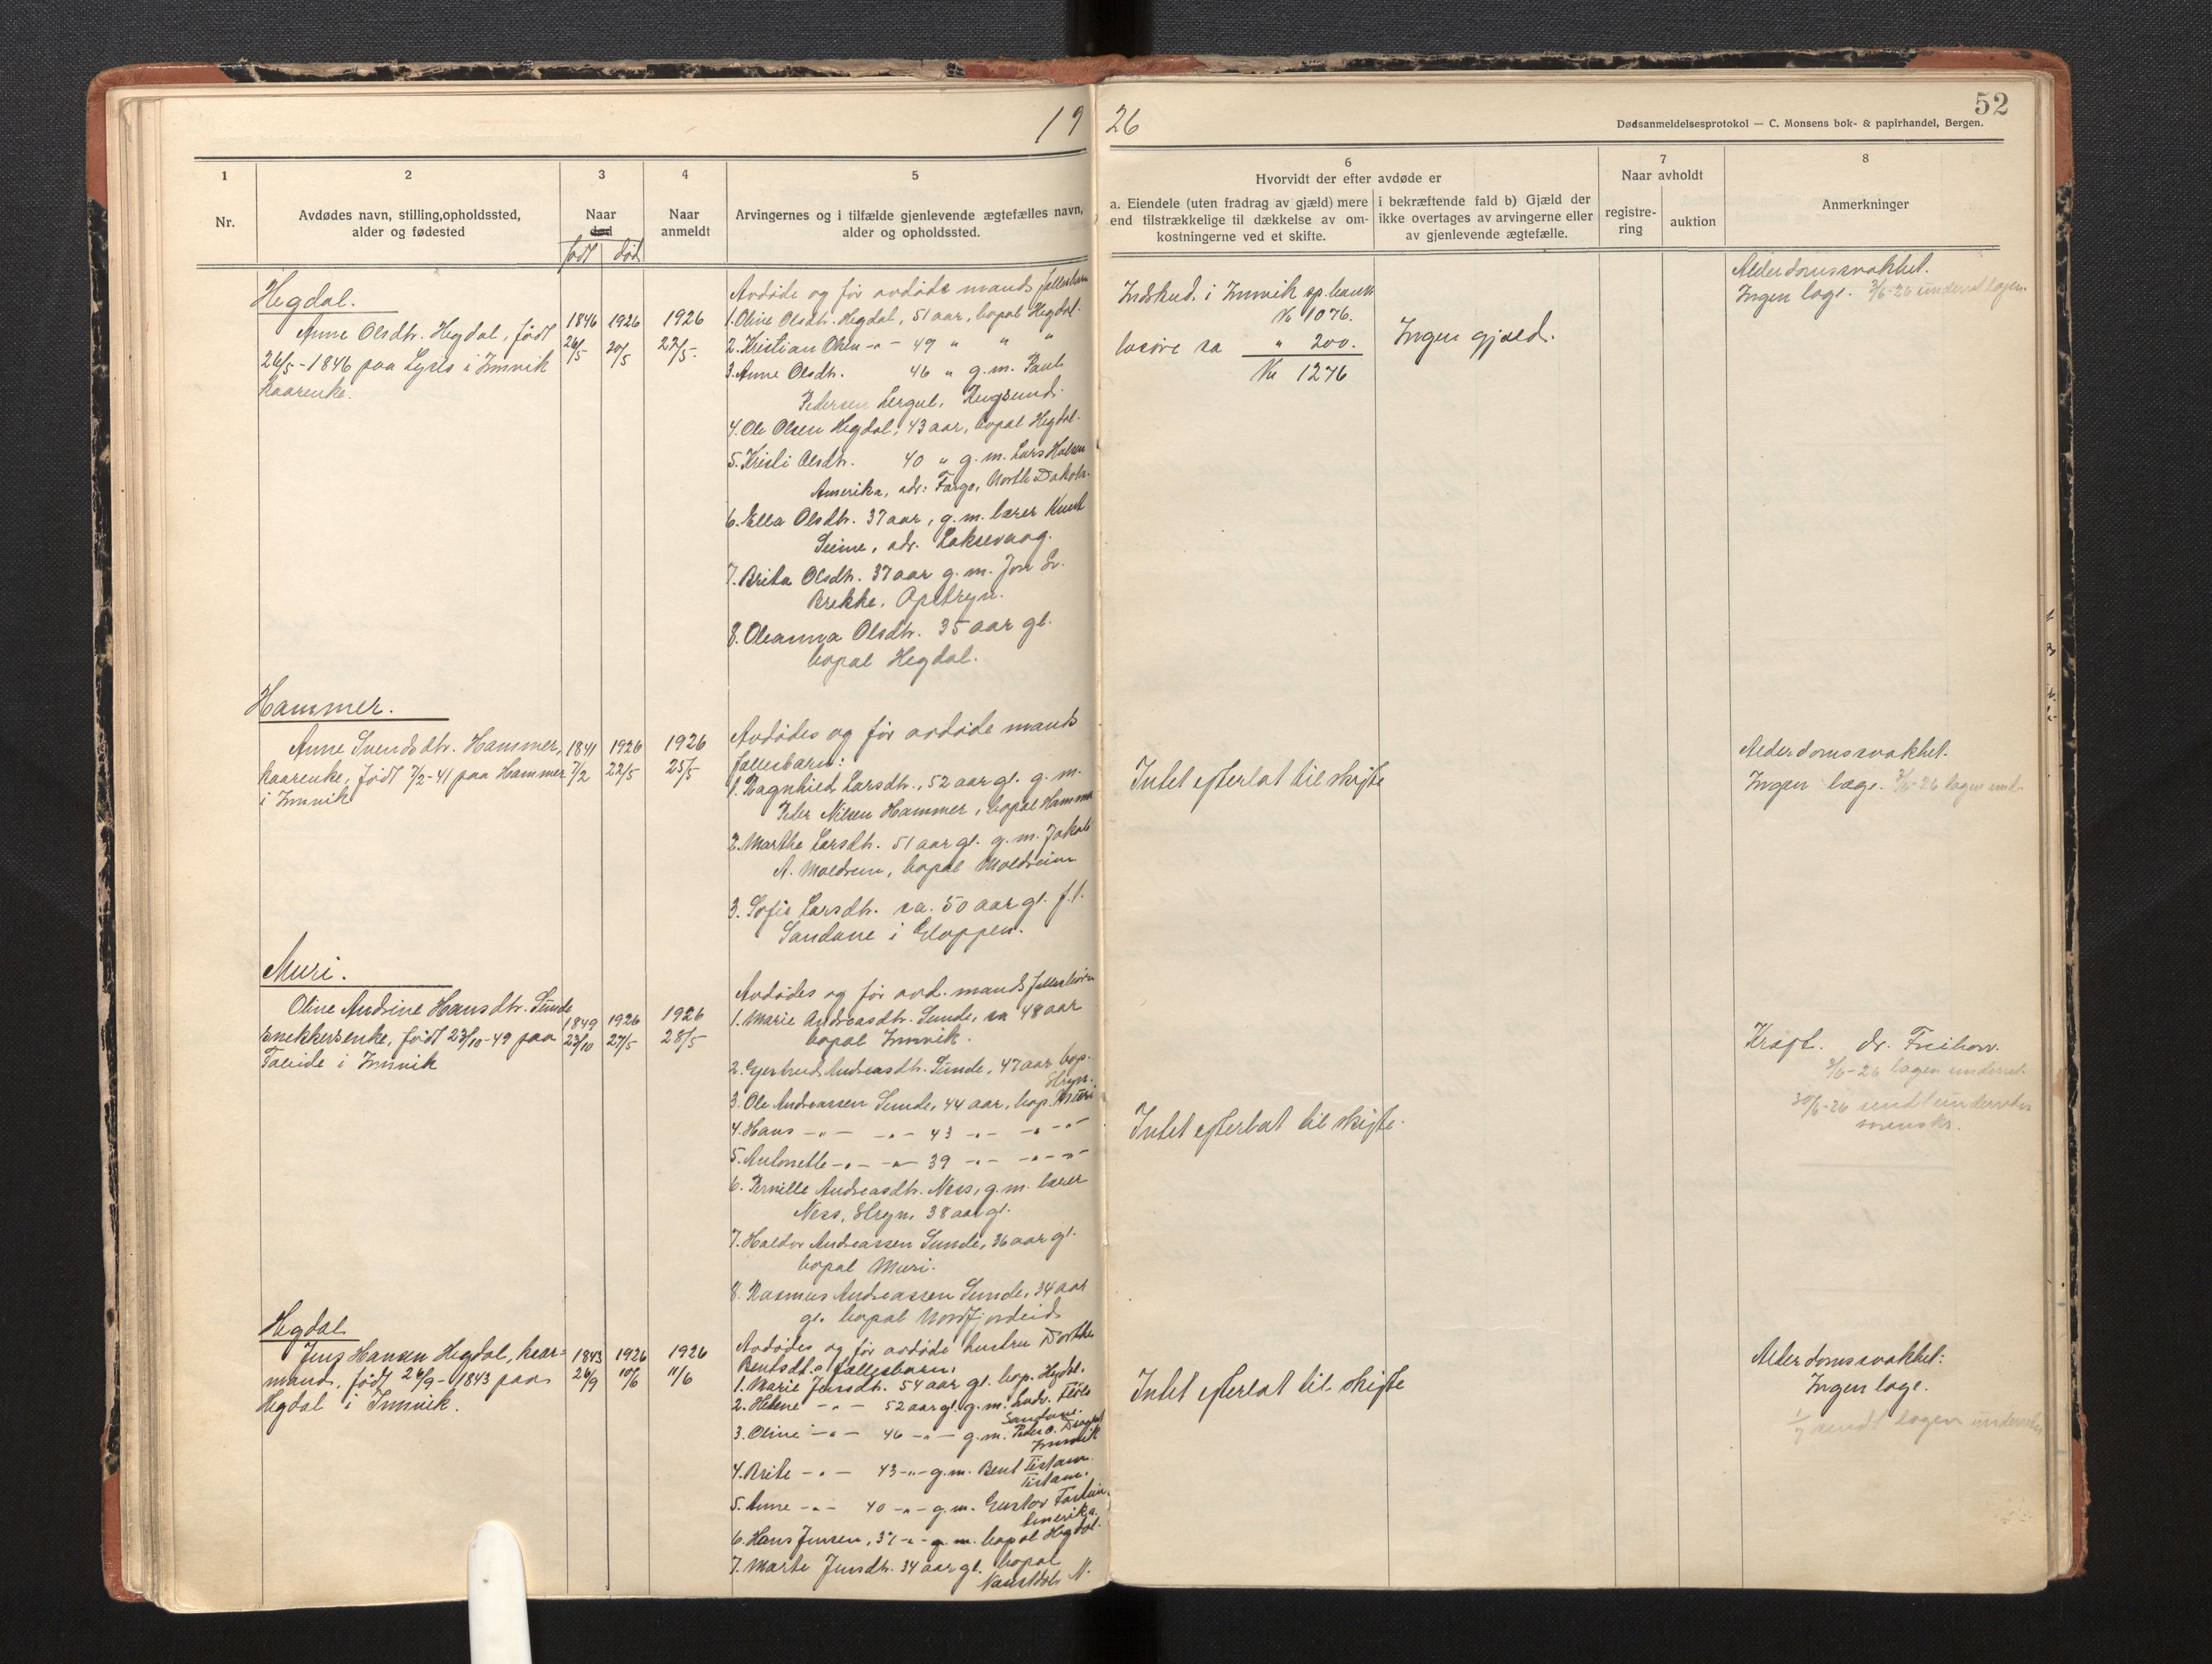 19 26
52
Dødsanmeldelsesprotokol — C. Monsens bok- & papirhandel, Bergen.
1
Nr.
2
Avdødes navn, stilling, opholdssted,
alder og fødested
3
Naar
død
født død
4
Naar
anmeldt
5
Arvingernes og i tilfælde gjenlevende ægtefælles navn,
alder og opholdssted.
6
Hvorvidt der efter avdøde er
a. Eiendele (uten fradrag av gjæld) mere
end tilstrækkelige til dækkelse av om-
kostningerne ved et skifte.
i bekræftende fald b) Gjæld der
ikke overtages av arvingerne eller
av gjenlevende ægtefælle.
7
Naar avholdt
registre-
ring
auktion
8
Anmerkninger
Hegdal.
Anne Olsdtr. Hegdal, født
26/5-1846 paa i Innvik
kaarenke.
1846
26/5
1926
20/5
1926
22/5.
Avdøde og før avdøde mands fællesbarn
1. Oline Olsdtr. Hegdal, 51 aar, bopæl Hegdal.
2. Kristian Olsen -"- 49 " " "
3. Anne Olsdtr. 46 " g.m. Paul
Pedersen Rugsund.
4. Ole Olsen Hegdal, 43 aar, bopæl Hegdal.
5. Kristi Olsdtr. 40 " g.m. Lars
Amerika, adr: Fargo, North Dakota.
6. Ella Olsdtr. 37 aar, g.m. lærer Knut
Seime, adr. Laksevaag.
7. Brita Olsdtr. 37 aar g.m. Jon Sv.
Brekke, Opstryn.
8. Oleanna Olsdtr. 35 aar gl.
bopæl Hegdal.
Indskud i Innvik sp.bank
Kr 1076.
løsøre ca " 200.
Kr 1276
Ingen gjæld.
Alderdomssvakhet.
Ingen læge. 3/6-26 underret lægen.
Hammer.
Anne Svendsdtr. Hammer,
kaarenke, født 7/2-41 paa Hammer
i Innvik
1841
7/2
1926
22/5
1926
25/5
Avdødes og før avdøde mands
fællesbarn:
1. Ragnhild Larsdtr., 52 aar gl. g.m.
Peder Nilsen Hammer, bopæl Hammer
2. Marthe Larsdtr. 51 aar gl. g.m. Jakob
A. Moldrem, bopæl Moldreim
3. Sofie Larsdtr. ca. 50 aar gl. f.t.
Sandane i Gloppen.
Intet efterlat til skifte
Alderdomssvakhet.
Ingen læge. 3/6-26 lægen und.
Muri.
Oline Andrine Hansdtr. Sunde
snekkerenke, født 23/10-49 paa
Faleide i Innvik
1849
23/10
1926
27/5
1926
28/5
Avdødes og før avd. mands fællesbørn
1. Marie Andreasdtr. Sunde, ca 48 aar
bopæl Innvik.
2. Gjertrud Andreasdtr. Sunde, 47 aar bop.
Stryn.
3. Ole Andreassen Sunde, 44 aar, bop. Muri
4. Hans -"- -"- 43 -"- -"-
5. Antonette -"- -"- 39 -"- -"-
6. Pernille Andreasdtr. Ness, g.m. lærer
Ness, Stryn, 38 aar gl.
7. Haldor Andreassen Sunde, 36 aar gl.
bopæl Muri.
8. Rasmus Andreassen Sunde, 34 aar
gl. bopæl Nordfjordeid
Intet efterlat til skifte.
Kræft. dr.
3/6-26 lægen underret.
30/6-26 sendt underretn.
sorenskr.
Hegdal
Jens Hansen Hegdal, kaar=
mand, født 26/9-1843 paa
Hegdal i Innvik.
1843
26/9
1926
10/6
1926
11/6
Avdødes og før avdøde hustru Dorthe
Bentsdtr. fællesbarn:
1. Marie Jensdtr. 54 aar gl. bop. Hegdal.
2. Helene -"- 52 aar gl. g.m. Andr.
Sandane.
3. Oline -"- 46 -"- g.m. Peder O.
Innvik
4. Brite -"- 43 -"- g.m. Bent Tistam
Tistam.
5. Anne -"- 40 -"- g.m. Gustav
Amerika.
6. Hans Jensen, 37 -"- g.m. bopæl Hegdal.
7. Marte Jensdtr. 34 aar gl. bopæl
Naustdal N.
Intet efterlat til skifte
Alderdomssvakhet:
Ingen læge.
1/7 sendt lægen underretn